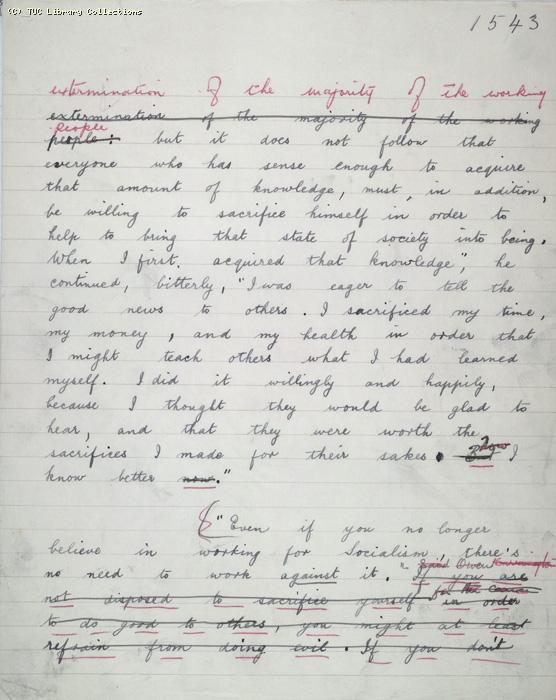 (C) TUC Library Collections
1543
extermination of the majority of the working
extermination of the majority of the working
People
people: but it does not follow that
everyone who has sense enough to acquire
that amount of knowledge, must, in addition,
be willing to sacrifice himself in order to
help to bring that state of society into being.
When I first acquired that knowledge", he
continued, bitterly, "I was eager to tell the
good news to others. I sacrificed my time,
my money, and my health in order that
I might teach others what I had learned
myself. I did it willingly and happily,
because I thought they would be glad to
hear, and that they were worth the
sacrifices I made for their sakes. But I
know better now."
"Even if you no longer
believe in working for Socialism, there's
no need to work against it." said Owen
If you are
not disposed to sacrifice yourself in order
to do good to others, you might at least
refrain from doing evil. If you don't